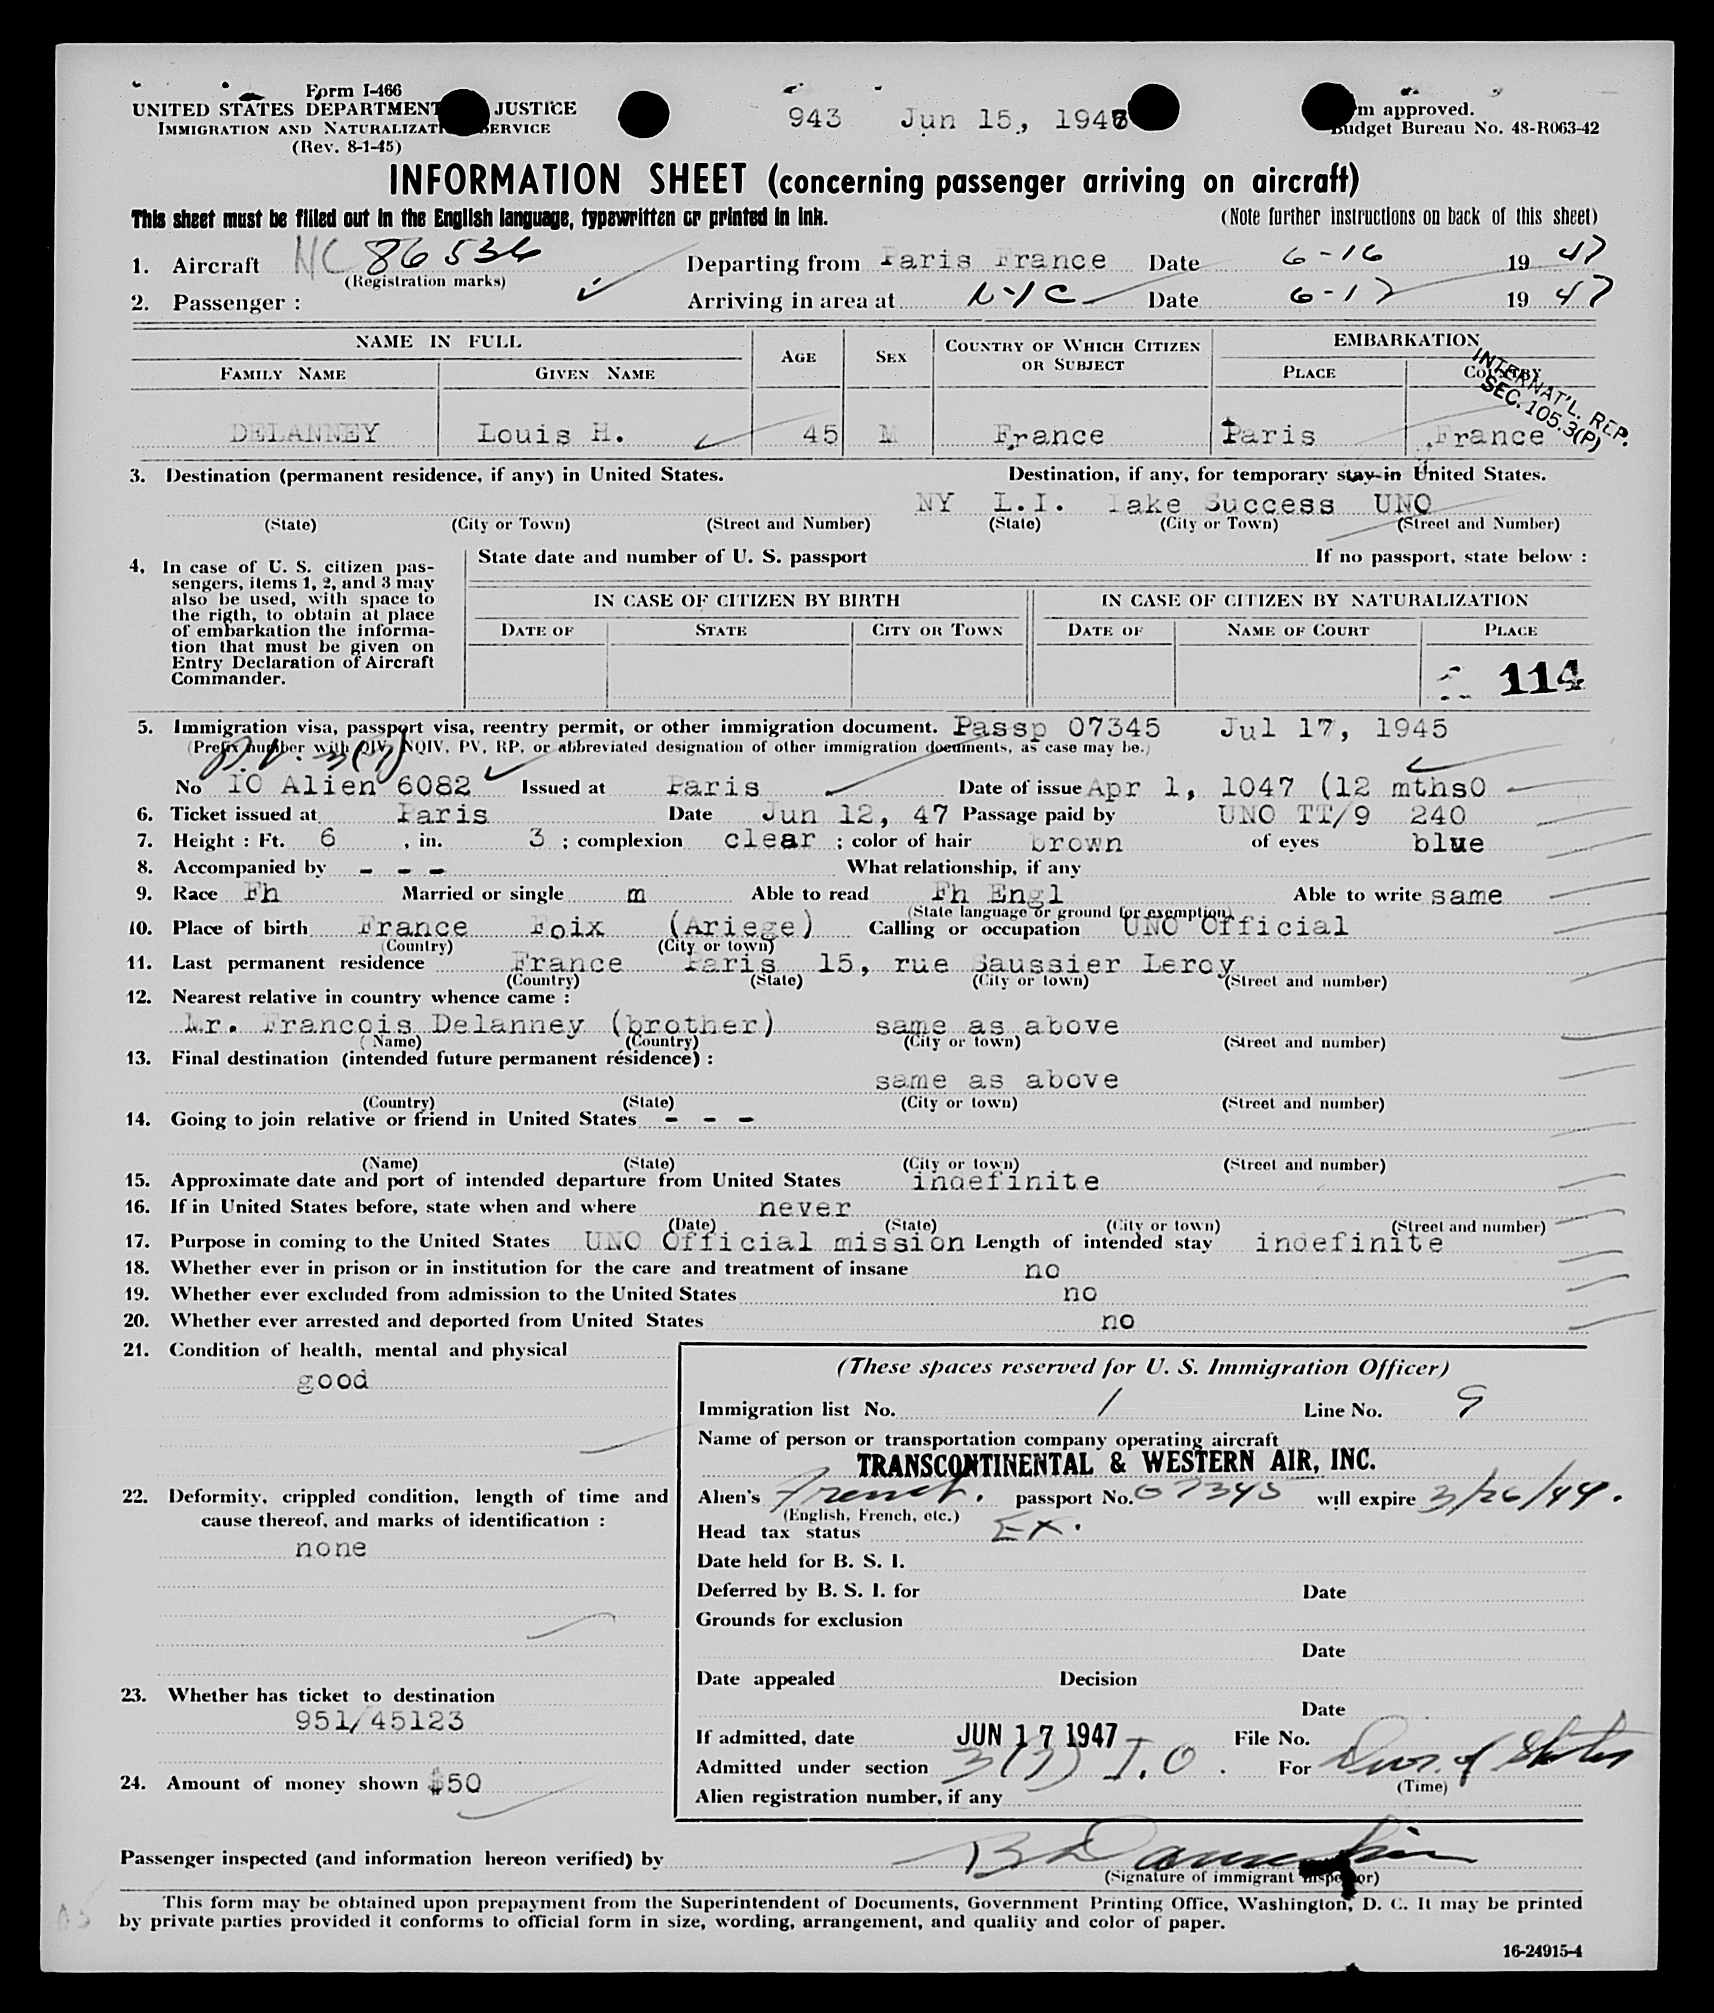 Form I-466
UNITED STATES DEPARTMENT JUSTICE
IMMIGRATION AND NATURALIZATI SERVICE
(Rev. 8-1-45)
943 Jun 15, 194
m approved.
Budget Bureau No. 48-R063-42
INFORMATION SHEET (concerning passenger arriving on aircraft)
This sheet must be filled out in the English language, typewritten or printed in ink.
(Note further instructions on back of this sheet)
1. Aircraft NC 86536 Departing from Paris France Date 6-16 19 47
(Registration marks)
2. Passenger : Arriving in area at NYC Date 6-17 19 47
NAME IN FULL AGE SEX COUNTRY OF WHICH CITIZEN OR SUBJECT EMBARKATION
FAMILY NAME GIVEN NAME PLACE COUNTRY
INTERNAT'L. REP.
SEC. 105.3(P)
DELANNEY Louis H. 45 M France Paris France
3. Destination (permanent residence, if any) in United States. Destination, if any, for temporary stay in United States.
NY L.I. Lake Success UNO
(State) (City or Town) (Street and Number) (State) (City or Town) (Street and Number)
4. In case of U. S. citizen pas-
sengers, items 1, 2, and 3 may
also be used, with space to
the rigth, to obtain at place
of embarkation the informa-
tion that must be given on
Entry Declaration of Aircraft
Commander.
State date and number of U. S. passport If no passport, state below :
IN CASE OF CITIZEN BY BIRTH IN CASE OF CITIZEN BY NATURALIZATION
DATE OF STATE CITY OR TOWN DATE OF NAME OF COURT PLACE
114
5. Immigration visa, passport visa, reentry permit, or other immigration document. Passp 07345 Jul 17, 1945
(Prefix number with QIV, NQIV, PV, RP, or abbreviated designation of other immigration documents, as case may be.)
No IO Alien 6082 Issued at Paris Date of issue Apr 1, 1047 (12 mths0
6. Ticket issued at Paris Date Jun 12, 47 Passage paid by UNO TT/9 240
7. Height : Ft. 6 , in. 3 ; complexion clear ; color of hair brown of eyes blue
8. Accompanied by - - - What relationship, if any
9. Race Fh Married or single m Able to read Fh Engl Able to write same
(State language or ground for exemption)
10. Place of birth France Foix (Ariege) Calling or occupation UNO Official
(Country) (City or town)
11. Last permanent residence France Paris 15, rue Saussier Leroy
(Country) (State) (City or town) (Street and number)
12. Nearest relative in country whence came :
Mr. Francois Delanney (brother) same as above
(Name) (Country) (City or town) (Street and number)
13. Final destination (intended future permanent résidence) :
same as above
(Country) (State) (City or town) (Street and number)
14. Going to join relative or friend in United States - - -
(Name) (State) (City or town) (Street and number)
15. Approximate date and port of intended departure from United States indefinite
16. If in United States before, state when and where never
(Date) (State) (City or town) (Street and number)
17. Purpose in coming to the United States UNO Official mission Length of intended stay indefinite
18. Whether ever in prison or in institution for the care and treatment of insane no
19. Whether ever excluded from admission to the United States no
20. Whether ever arrested and deported from United States no
21. Condition of health, mental and physical
good
22. Deformity, crippled condition, length of time and
cause thereof, and marks of identification :
none
23. Whether has ticket to destination
951/45123
24. Amount of money shown $50
(These spaces reserved for U. S. Immigration Officer)
Immigration list No. 1 Line No. 9
Name of person or transportation company operating aircraft
TRANSCONTINENTAL & WESTERN AIR, INC.
Alien's French. passport No. 07345 will expire 3/26/49.
(English, French, etc.)
Head tax status Ex.
Date held for B. S. I.
Deferred by B. S. I. for Date
Grounds for exclusion
Date
Date appealed Decision
Date
If admitted, date JUN 17 1947 File No.
Admitted under section 3(7) I.O. For Dur. of Status
(Time)
Alien registration number, if any
Passenger inspected (and information hereon verified) by
(Signature of immigrant inspector)
This form may be obtained upon prepayment from the Superintendent of Documents, Government Printing Office, Washington, D. C. It may be printed
by private parties provided it conforms to official form in size, wording, arrangement, and quality and color of paper.
16-24915-4